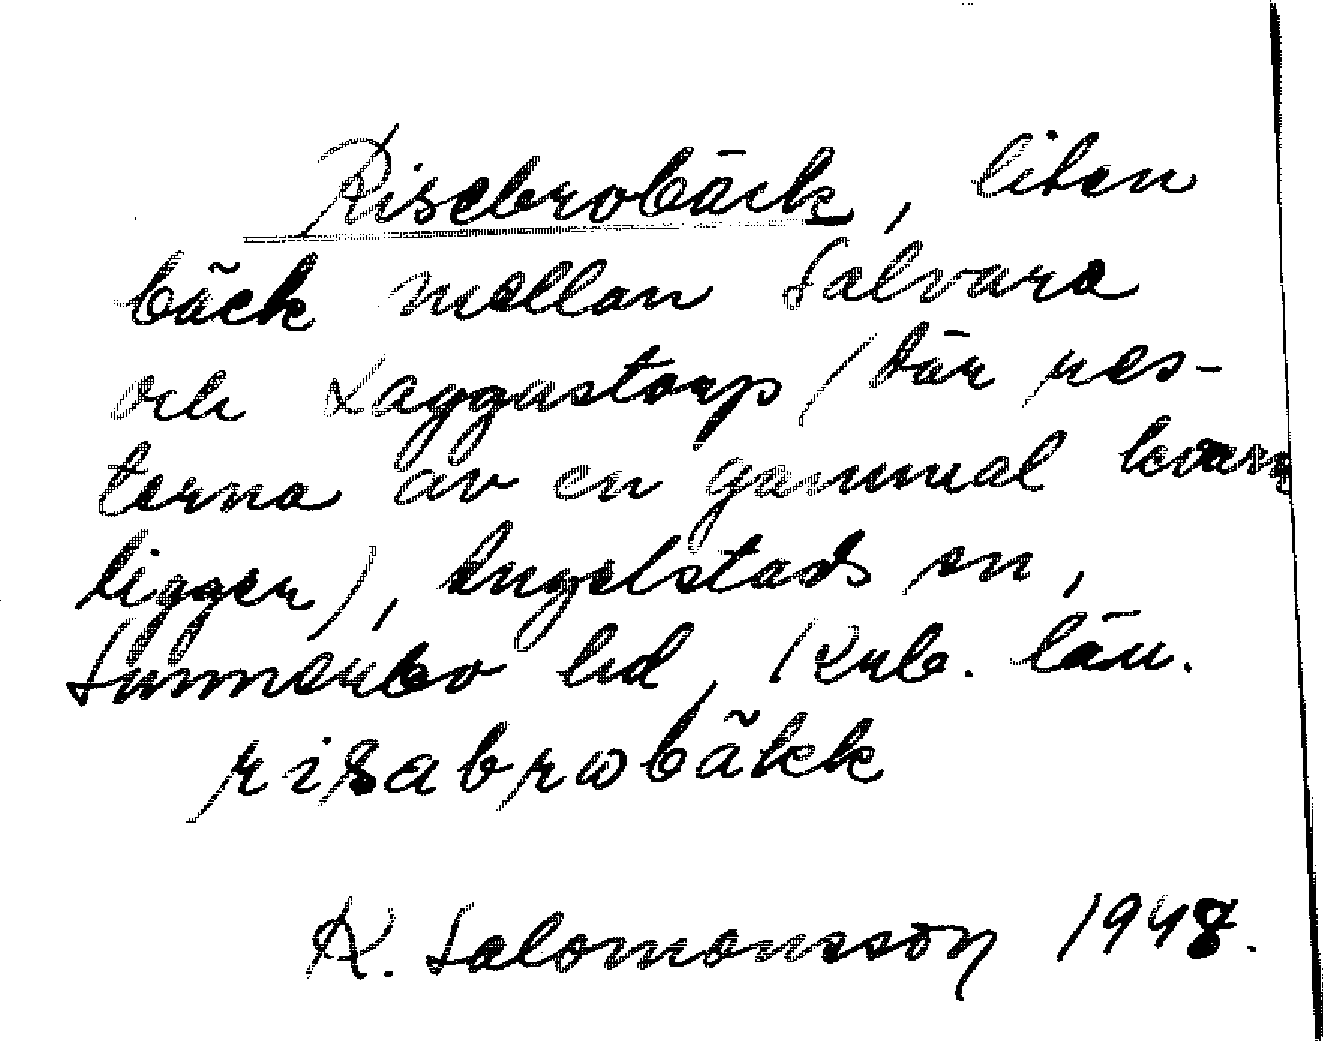 Risebrobäck, liten
bäck mellan Salvara
och Laggastorp (där res-
terna av en gammal kvarn
ligger), Ängelstads sn,
Sunnerbo hd, Krb. län.
risabrωbäkk
K. Salomonsson 1948.